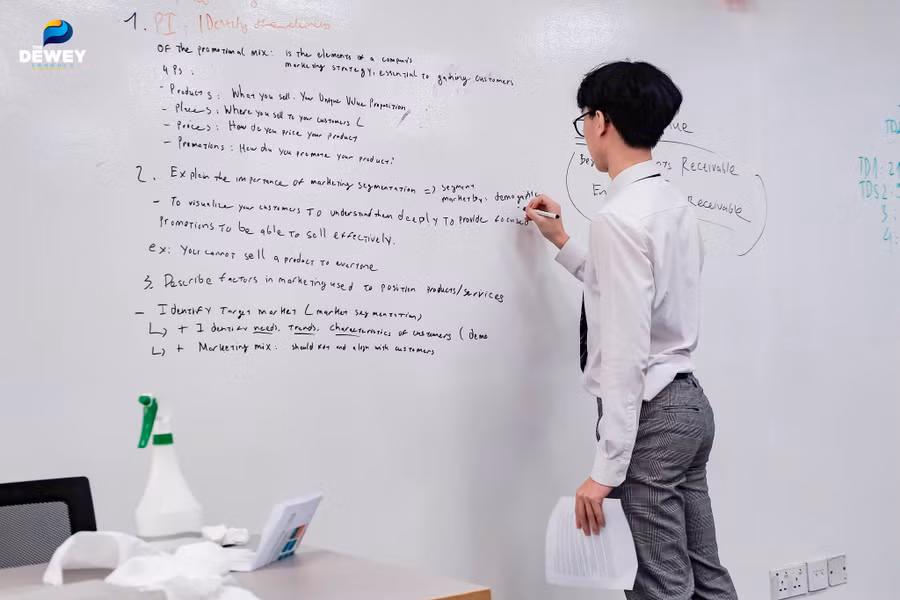 THE
DEWEY
SCHOOLS
1. PI: Identify the elements
OF the promotional mix: is the elements of a company's
marketing strategy, essential to gaining customers
4 Ps:
- Products: What you sell. Your Unique Value Proposition
- Places: Where you sell to your customers
- Prices: How do you price your product
- Promotions: How do you promote your product?
2. Explain the importance of marketing segmentation => segment
market by: demographic
- To visualize your customers to understand them deeply to provide focused
promotions to be able to sell effectively.
ex: You cannot sell a product to everyone
3. Describe factors in marketing used to position products/services
- Identify Target market (market segmentation)
+ Identify needs, trends, characteristics of customers (demo
+ Marketing mix: should and align with customers
Receivable
En
Receivable
TD1: 2
TDS2:
3:
4: